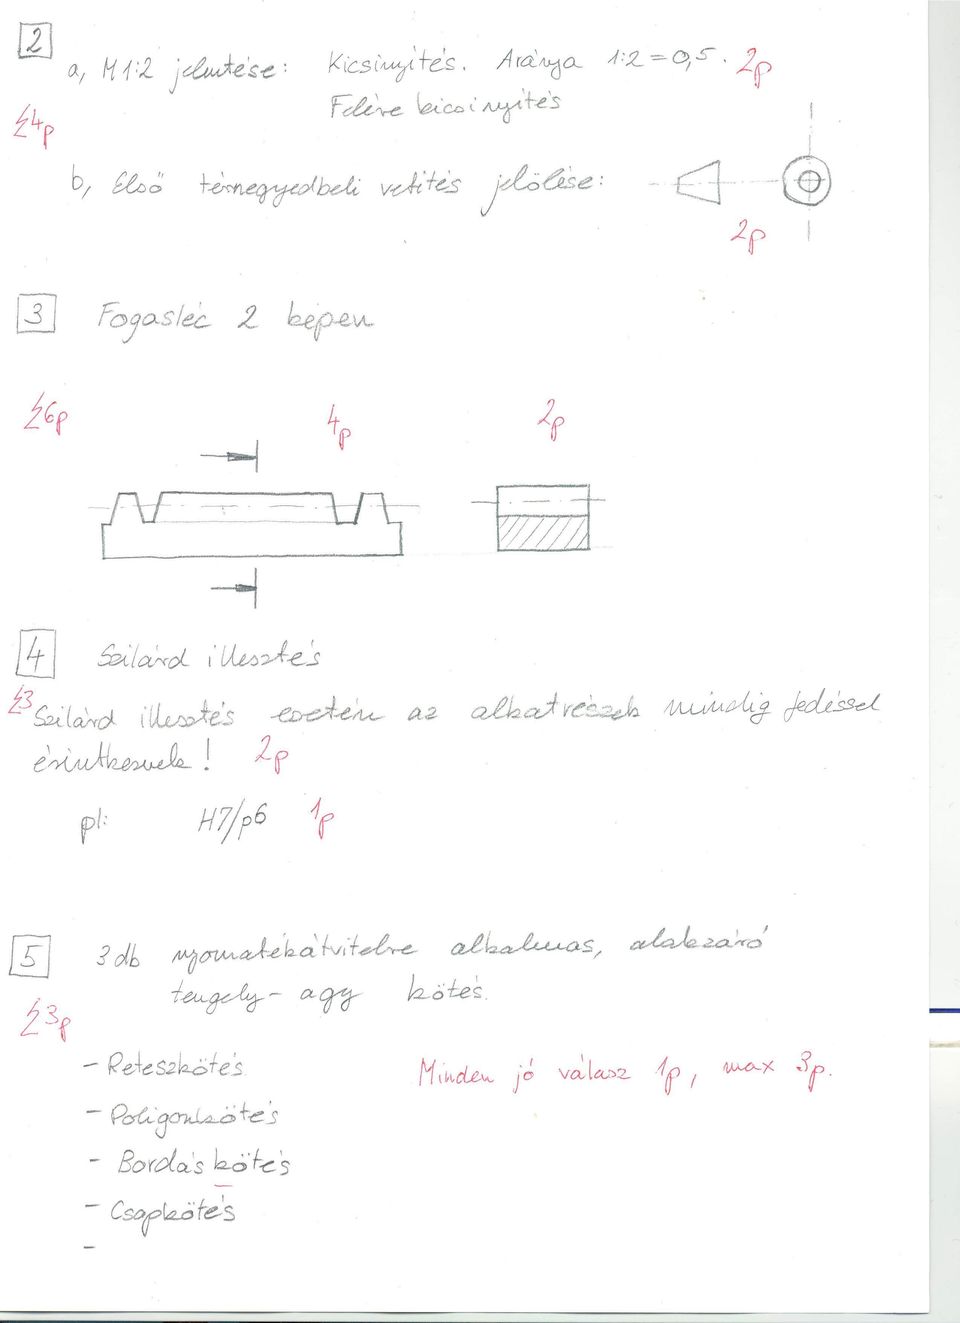 2
a, M 1:2 jelentése: Kicsinyítés. Aránya 1:2 = 0,5. 2p
Felére kicsinyítés
Σ4p
b, Első térnegyedbeli vetítés jelölése:
2p
3 Fogasléc 2 képen
Σ6p 4p 2p
4 Szilárd illesztés
Σ3
Szilárd illesztés esetén az alkatrészek mindig fedéssel
érintkeznek! 2p
pl: H7/p6 1p
5 3 db nyomatékátvitelre alkalmas, alakzáró
tengely - agy kötés.
Σ3p
- Reteszkötés Minden jó válasz 1p, max 3p.
- Poligonkötés
- Bordás kötés
- Csapkötés
-